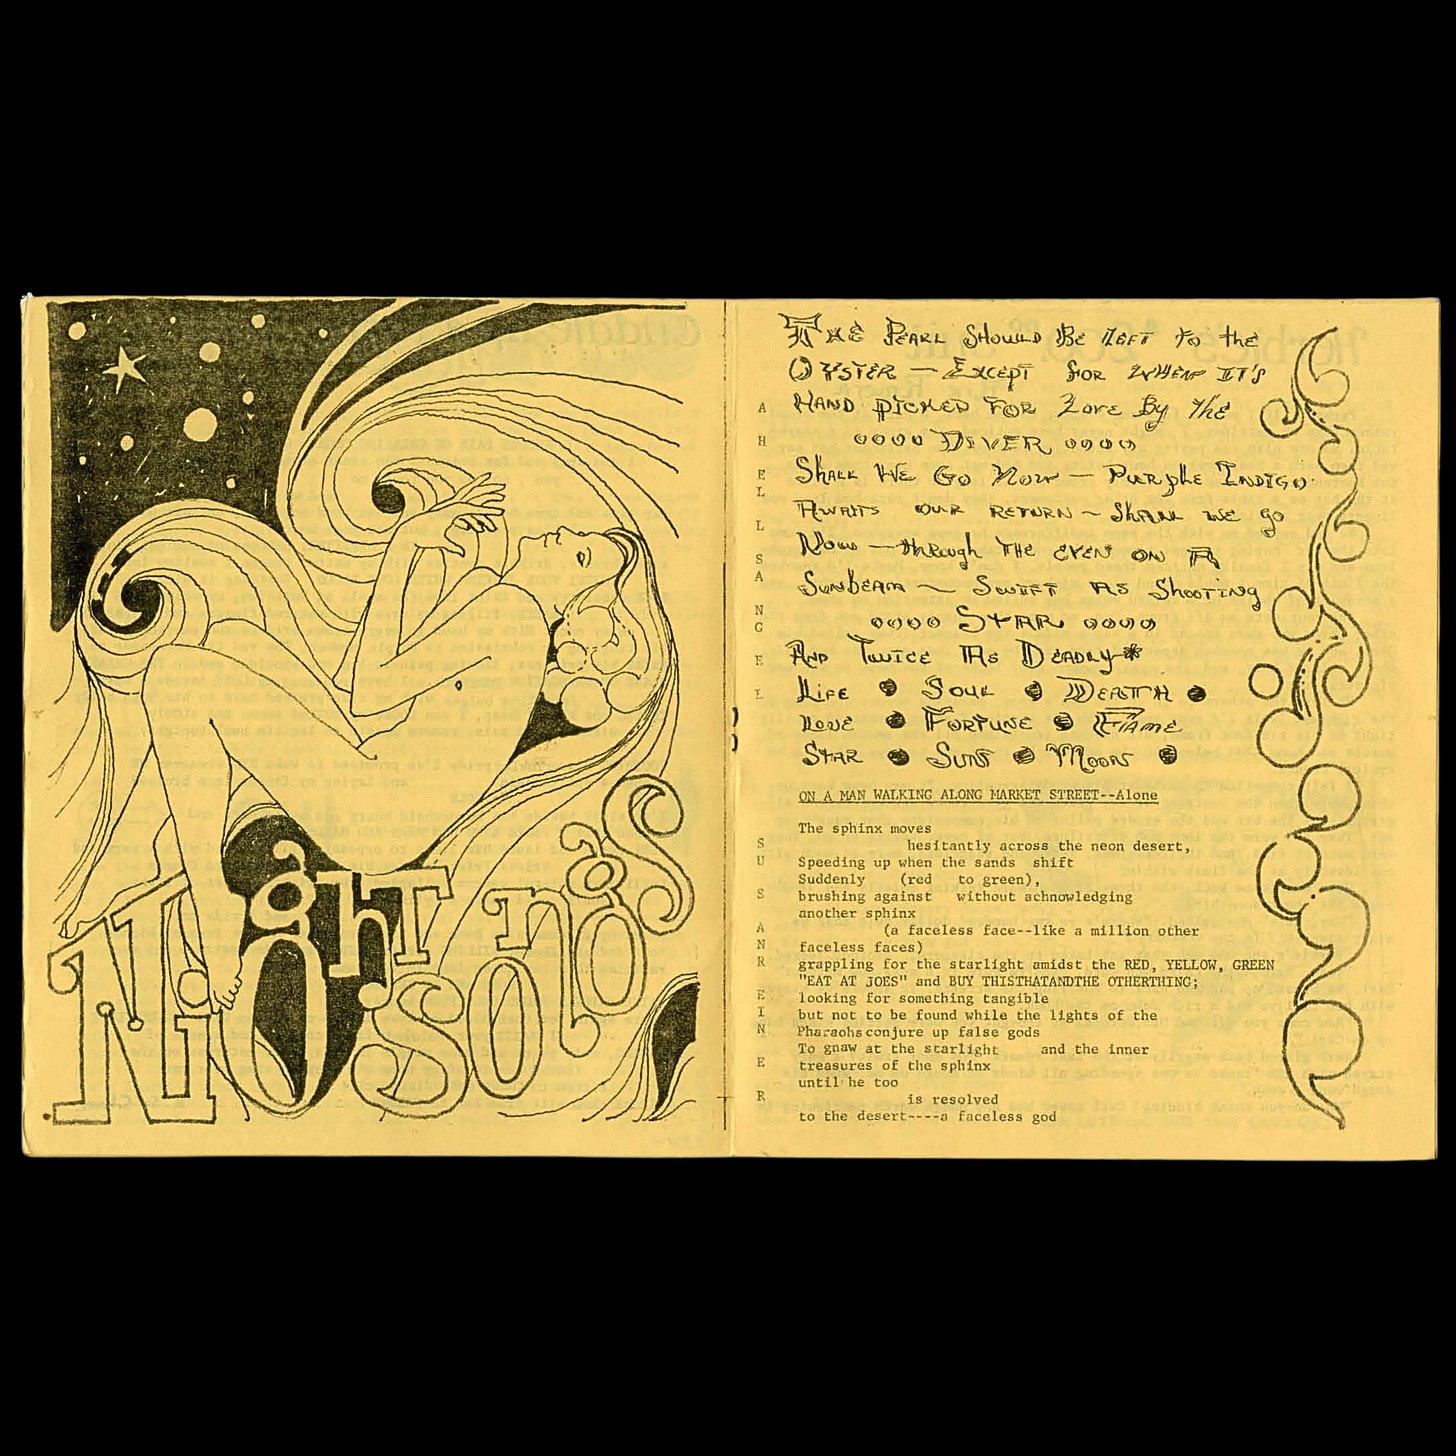 Night
Songs
THE PEARL SHOULD BE LEFT TO the
OYSTER — Except FOR WHEN IT'S
HAND PICKED FOR Love By The
DIVER
SHALL WE GO NOW — PURPLE INDIGO
AWAITS OUR RETURN ~ SHALL WE go
Now — through THE EVEN ON A
SUNBEAM ~ SWIFT AS Shooting
STAR
AND TWICE AS DEADLY*
LIFE ● SOUL ● DEATH ●
LOVE ● FORTUNE ● FAME
STAR ● SUN ● MOON ●
A HELL'S ANGEL
ON A MAN WALKING ALONG MARKET STREET--Alone
The sphinx moves
hesitantly across the neon desert,
Speeding up when the sands shift
Suddenly (red to green),
brushing against without achnowledging
another sphinx
(a faceless face--like a million other
faceless faces)
grappling for the starlight amidst the RED, YELLOW, GREEN
"EAT AT JOES" and BUY THISTHATANDTHE OTHERTHING;
looking for something tangible
but not to be found while the lights of the
Pharaohs conjure up false gods
To gnaw at the starlight and the inner
treasures of the sphinx
until he too
is resolved
to the desert----a faceless god
SUSAN REINER